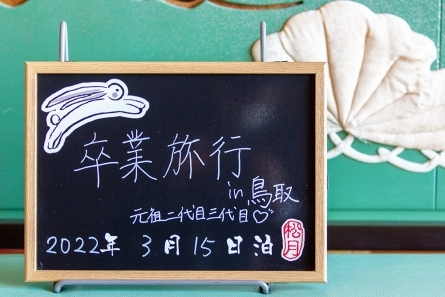 卒業旅行
in鳥取
元祖二代目三代目♡
2022年 3月15日泊
松月